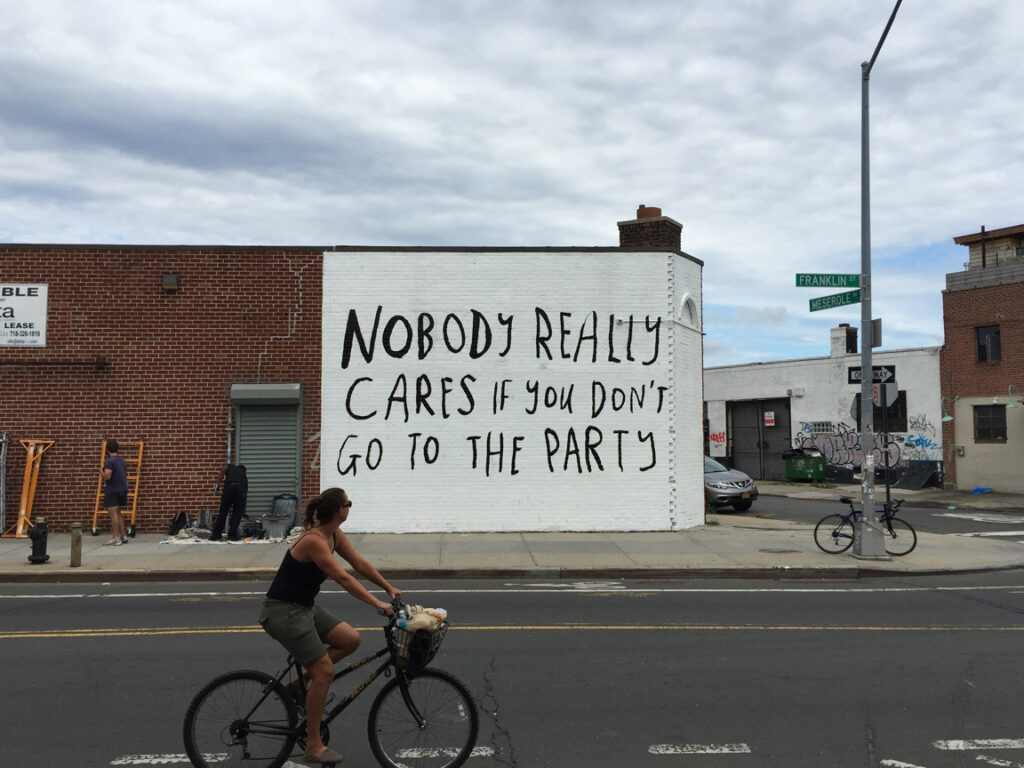 BLE
ta
LEASE
718-326-1818
NOBODY REALLY
CARES IF YOU DON'T
GO TO THE PARTY
FRANKLIN ST
MESEROLE
ONE WAY